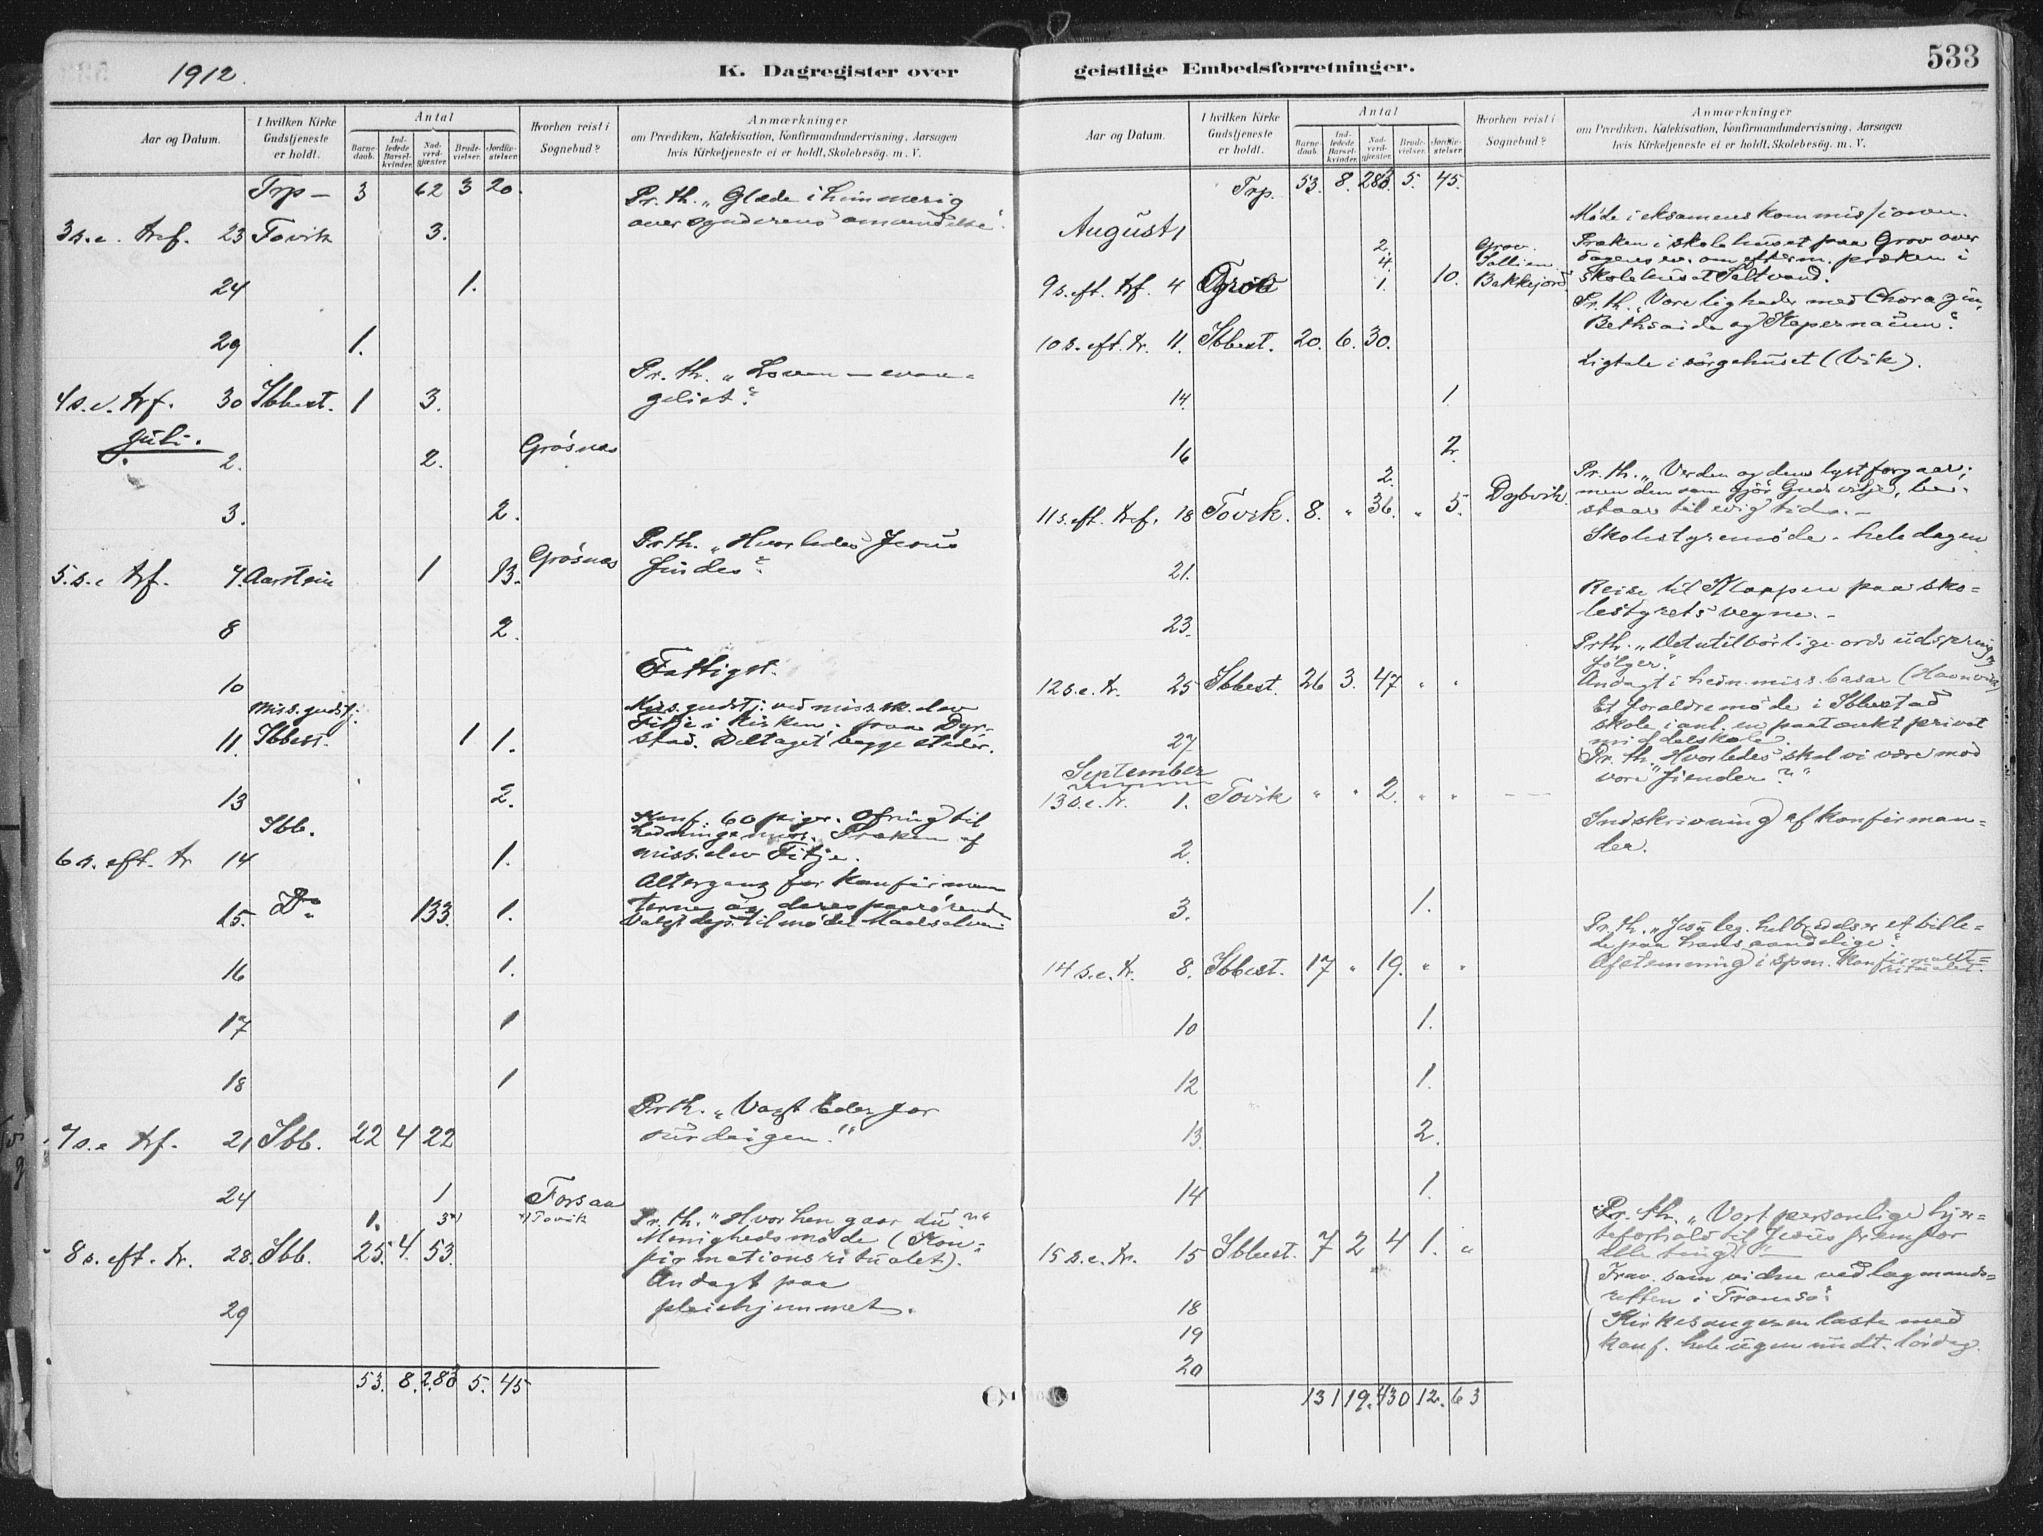 1912.
K. Dagregister over
Aar og Datum.
I hvilken Kirke Gudstjeneste er holdt.
Antal
Barnedaab.
Indledede Barselkvinder.
Nadverdgjæster.
Brudevielser.
Jordfæstelser.
Hvorhen reist i Sognebud?
Anmærkninger
om Prædiken, Katekisation, Konfirmandundervisning, Aarsagen
hvis Kirketjeneste ei er holdt, Skolebesøg. m. V.
Trp — 3 62 3 20. Pr. th. „Glæde i himmerig
over synderens omvendelse".
3 s. e. tref. 23 Tovik 3.
24 1.
29 1.
Pr. th. „Loven — evan-
4 s. e. trf. 30 Ibbest. 1 3. geliet".
Juli.
2. 2. Grøsnes
3. 2.
Pr th. „Hvorledes Jesus
5. s. e trf. 7. Aarstein 1 13. Grøsnes findes".
8 2.
10 Fattigst.
Miss. gudstj. Miss. gudstj. ved miss. sk. elev
Fitje i kirken; paa Dyr-
11. Ibbest. 1 1. stad. Deltaget begge steder.
13 2.
Ibb. Konf. 60 piger. Ofring til
hedningemiss. Præken af
6 s. eft. tr 14 1. miss. elev Fitje.
Altergang for konfirman
terne og deres paarørende
15. Do 133. 1. Valgt deps. til mødet Maalselven
16 1.
17 1
18 1
Pr th. „Vogt Eder for
7 s. e trf. 21 Ibb. 22 4 22 surdeigen!"
24 1 Forsaa
1. 3 x) x) Tovik Pr. th. "Hvorhen gaar du?"
Menighedsmøde (Kon-
8 s. eft. tr. 28. Ibb. 25. 4. 53. firmationsritualet).
Andagt paa
29 pleiehjemmet.
53. 8. 283 5. 45
geistlige Embedsforretninger.
533
Aar og Datum.
I hvilken Kirke Gudstjeneste er holdt.
Antal
Barnedaab.
Indledede Barselkvinder.
Nadverdgjæster.
Brudevielser.
Jordfæstelser.
Hvorhen reist i Sognebud?
Anmærkninger
om Prædiken, Katekisation, Konfirmandundervisning, Aarsagen
hvis Kirketjeneste ei er holdt, Skolebesøg. m. V.
Trp. 53. 8. 283. 5. 45.
August 1 Møde i eksamenskommissionen.
2. Grov. Præken i skolehuset paa Grov over
4. Sallien dagens ev. om efterm. præken i
9 s. eft. trf. 4 Grov 1. 10. Bakkejord skolehuset Saltvand.
Pr. th. „Vore ligheder med Chorazin,
10 s. eft. tr. 11. Ibbest. 20. 6. 30. Bethsaida og Kapernaum".
Ligtale i sørgehuset (Vik).
14. 1.
16 2.
2. Pr. th. „Verden og dens lyst forgaar;
Dybvik men den som gjør Guds vilje, be-
11 s. eft. tref. 18 Tovik. 8. „ 36. „ 5. staar til evig tid". —
Skolestyremøde. hele dagen
21.
Reise til Kloppen paa sko-
23. lestyrets vegne. —
Pr th. „Det utilbørlige ords udspring og
følger".
12 s. e. tr. 25 Ibbest. 26 3. 47 „ „ Andagt i hedn. miss. basar (Havnvik)
Et forældremøde i Ibbestad
skole i anl. en paatænkt privat
27 middelskole.
September Pr. th. Hvorledes skal vi være mod
13 s. e. tr. 1. Tovik „ „ 2. „ „ — vore fiender?"
Indskrivning af konfirman-
2. der.
3. 1.
Pr. th. „Jesu leg. helbredelser et bille-
de paa hans aandelige".
14 s. e. tr. 8. Ibbest. 17 „ 19. „ „ Afstemning i spm. konfirmasts-
ritualet.
10 1.
12 1.
13 2.
14 1.
Pr. th. „Vort personlige hjer-
teforhold til Jesus fremfor
15 s. e. tr. 15 Ibbest. 7 2 4 1. „ alle ting". —
Frav. som vidne ved lagmands-
18 retten i Tromsø.
19 Kirkesangeren læste med
20 konf. hele ugen undt. lørdag.
131 19. 430 12. 63